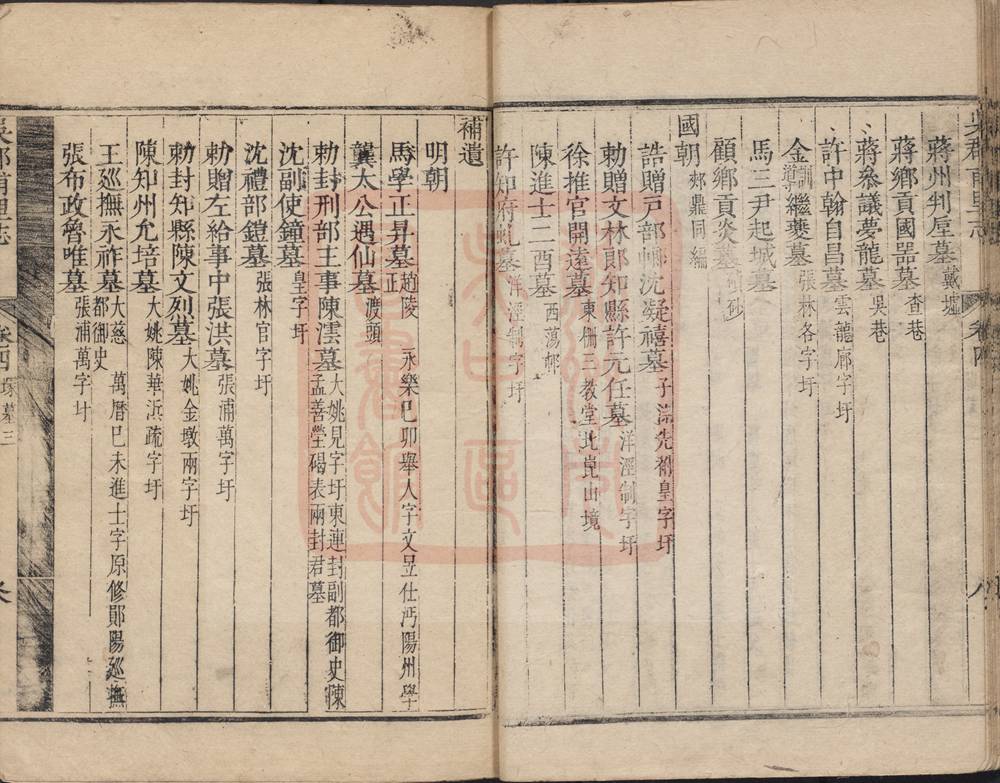 吳郡甫里志 卷四
蔣州判垕墓戴墟
蔣鄉貢國器墓查巷
蔣叅議夢龍墓吳巷
許中翰自昌墓雲龍廊字圩
金訓導繼爕墓張林各字圩
馬三尹起城墓
顧鄉貢炎墓砂
國朝郟鼎同編
誥贈戸部郎沈凝禧墓子 先 皇字圩
勅贈文林郎知縣許元任墓洋涇制字圩
徐推官開遠墓東柵三教堂北崑山境
陳進士二酉墓西蕩郟
許知府虬墓洋涇制字圩
補遺
明朝
馬學正昇墓趙陵 永樂巳卯舉人字文昱仕沔陽州學正
龔太公遇仙墓渡頭
勅封刑部主事陳澐墓大姚見字圩東連封副都御史陳孟善塋碣表兩封君墓
沈副使鐘墓皇字圩
沈禮部鎧墓張林官字圩
勅贈左給事中張洪墓張浦萬字圩
勅封知縣陳文烈墓大姚金墩兩字圩
陳知州允培墓大姚陳華浜疏字圩
王廵撫永祚墓大慈 萬曆巳未進士字原修鄖陽廵撫都御史
張布政魯唯墓張浦萬字圩
吳郡甫里志 卷四 塚墓三